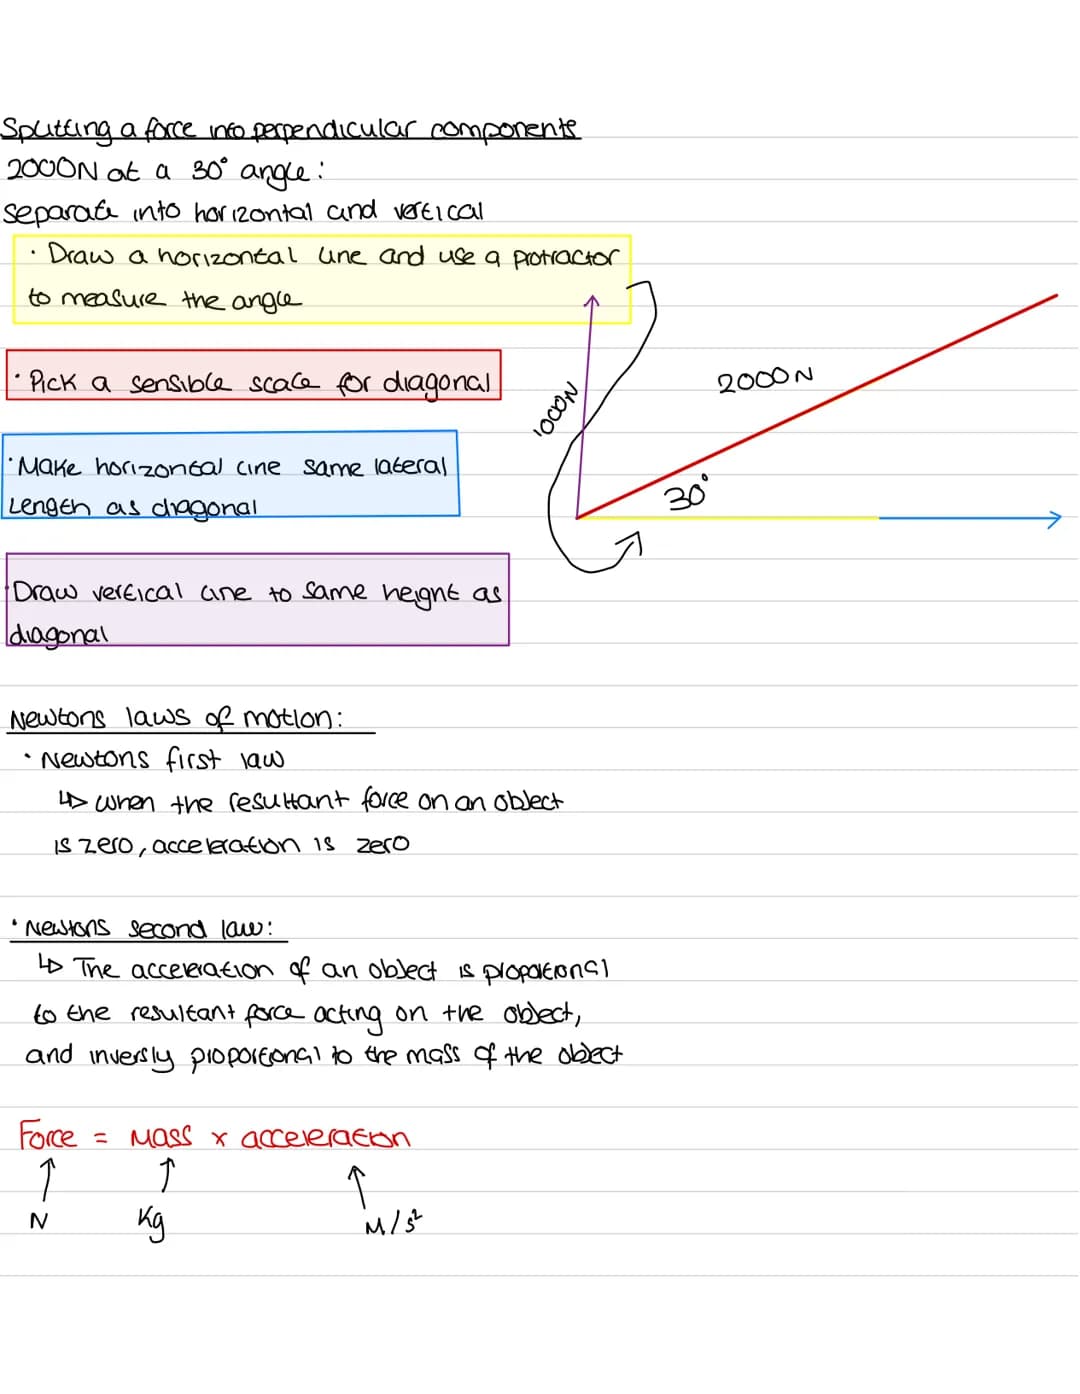 Splitting a force into perpendicular components
2000N at a 30° angle:
separate into horizontal and vertical
· Draw a horizontal line and use a protractor
to measure the angle
· Pick a sensible scale for diagonal
· Make horizontal line same lateral
Length as diagonal
Draw vertical line to same height as
diagonal
1000N
2000N
30°
Newtons laws of motion:
· Newtons first law
↳ when the resultant force on an object
is zero, acceleration is zero
· Newtons second law:
↳ The acceleration of an object is proportional
to the resultant force acting on the object,
and inversly proportional to the mass of the object
Force = Mass x acceleration
N Kg M/s²